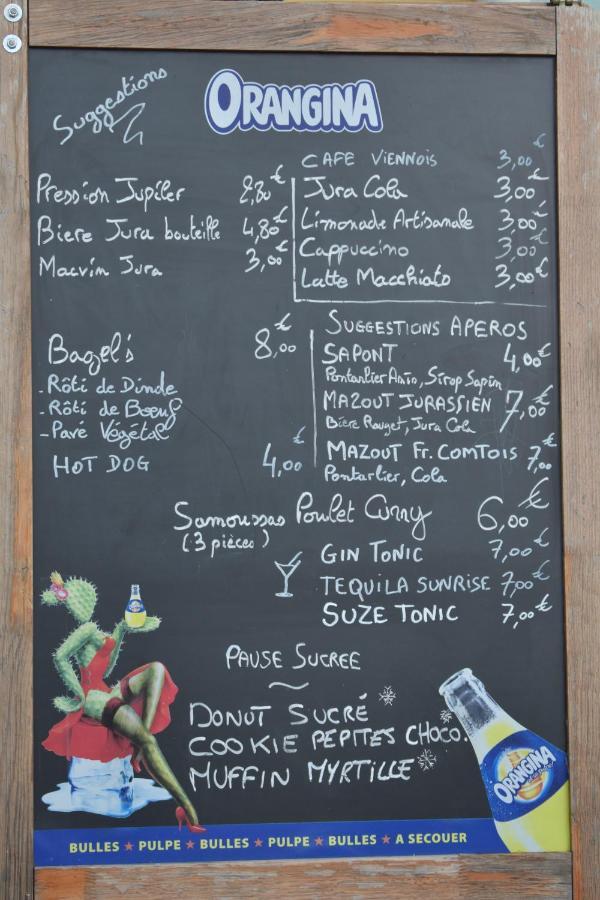 Suggestions
ORANGINA
CAFE VIENNOIS 3,00€
Pression Jupiler 2,80€
Jura Cola 3,00€
Biere Jura bouteille 4,80€
Limonade Artisanale 3,00€
Macvin Jura 3,00€
Cappuccino 3,00€
Latte Macchiato 3,00€
Bagel's 8,00€
- Rôti de Dinde
- Rôti de Boeuf
- Pavé Végétal
HOT DOG 4,00€
SUGGESTIONS APEROS
SAPONT 4,00€
Pontarlier Anis, Sirop Sapin
MAZOUT JURASSIEN 7,00€
Bière Rouget, Jura Cola
MAZOUT FR. COMTOIS 7,00€
Pontarlier, Cola
Samoussas Poulet Curry 6,00€
(3 pièces)
GIN TONIC 7,00€
TEQUILA SUNRISE 7,00€
SUZE TONIC 7,00€
PAUSE SUCREE
DONUT SUCRÉ
COOKIE PEPITES CHOCO.
MUFFIN MYRTILLE
ORANGINA
BULLES ★ PULPE ★ BULLES ★ PULPE ★ BULLES ★ A SECOUER